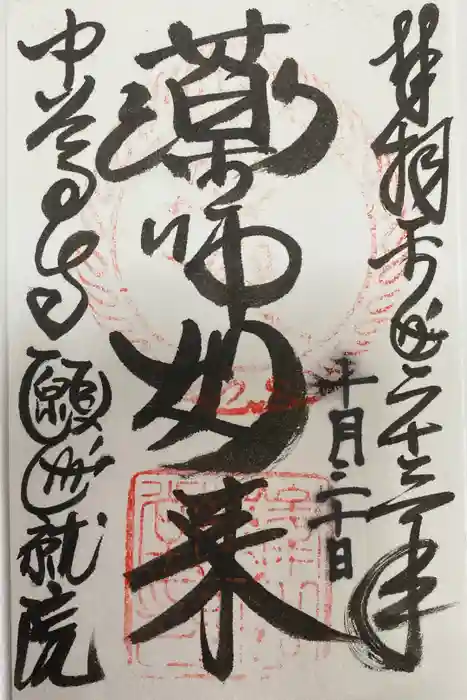 拝拝 平成二十三年
十月二十日
薬師如来
中尊寺 願成就院